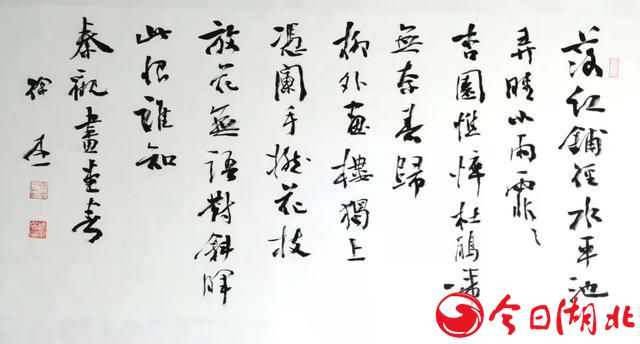 落紅鋪徑水平池
弄晴小雨霏々
杏園憔悴杜鵑啼
無奈春歸
柳外畫樓獨上
憑闌手撚花枝
放花無語對斜暉
此恨誰知
秦觀畫堂春
徐
今日湖北